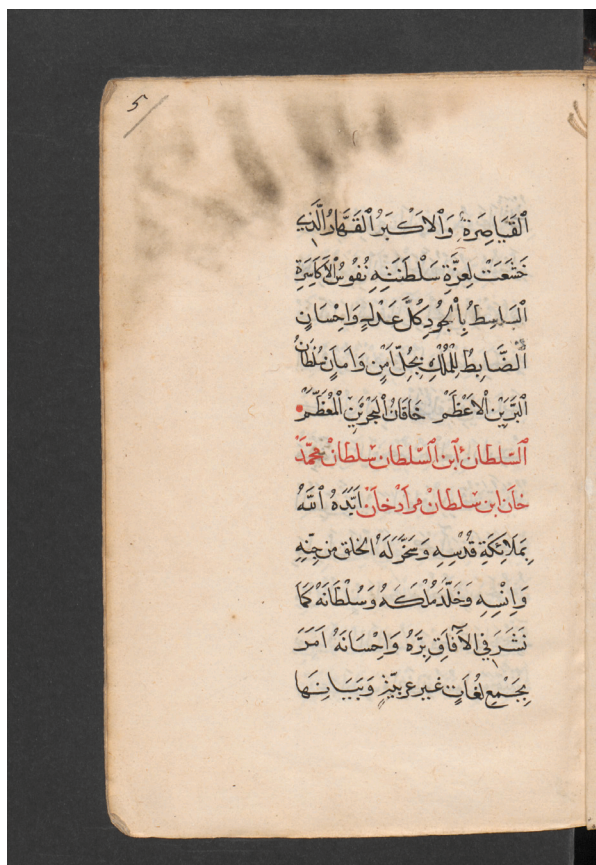 5
اَلْقَيَاصِرَةِ وَالْاَكْبَرُ الْقَهَّارُ الَّذِي
خَشَعَتْ لِعِزَّةِ سَلْطَنَتِهِ نُفُوسُ الْاَكَاسِرَةِ
الْبَاسِطُ بِالْجُودِ كُلَّ عَدْلٍ وَاِحْسَانٍ
اَلضَّابِطُ لِلْمُلْكِ بِجُلِّ اَمْنٍ وَاَمَانٍ سُلْطَانُ
الْبَرَّيْنِ الْاَعْظَمْ خَاقَانُ الْبَحْرَيْنِ الْمُعَظَّمْ
اَلسّلطان ابن السّلطان سلطان محمّد
خان ابن سلطان مرادخان اَيَّدَهُ اللّٰهُ
بِمَلَائِكَةِ قُدْسِهِ وَسَخَّرَ لَهُ الخلق مِنْ جِنِّهِ
وَاِنْسِهِ وَخَلَّدَ مُلْكَهُ وَسُلْطَانَهُ كَمَا
نَشَرَ فِي الْآفَاقِ بِرَّهُ وَاِحْسَانَهُ اَمَرَ
بِجَمْعِ لُغَاتٍ غير عربيّةٍ وَبَيَانِهَا